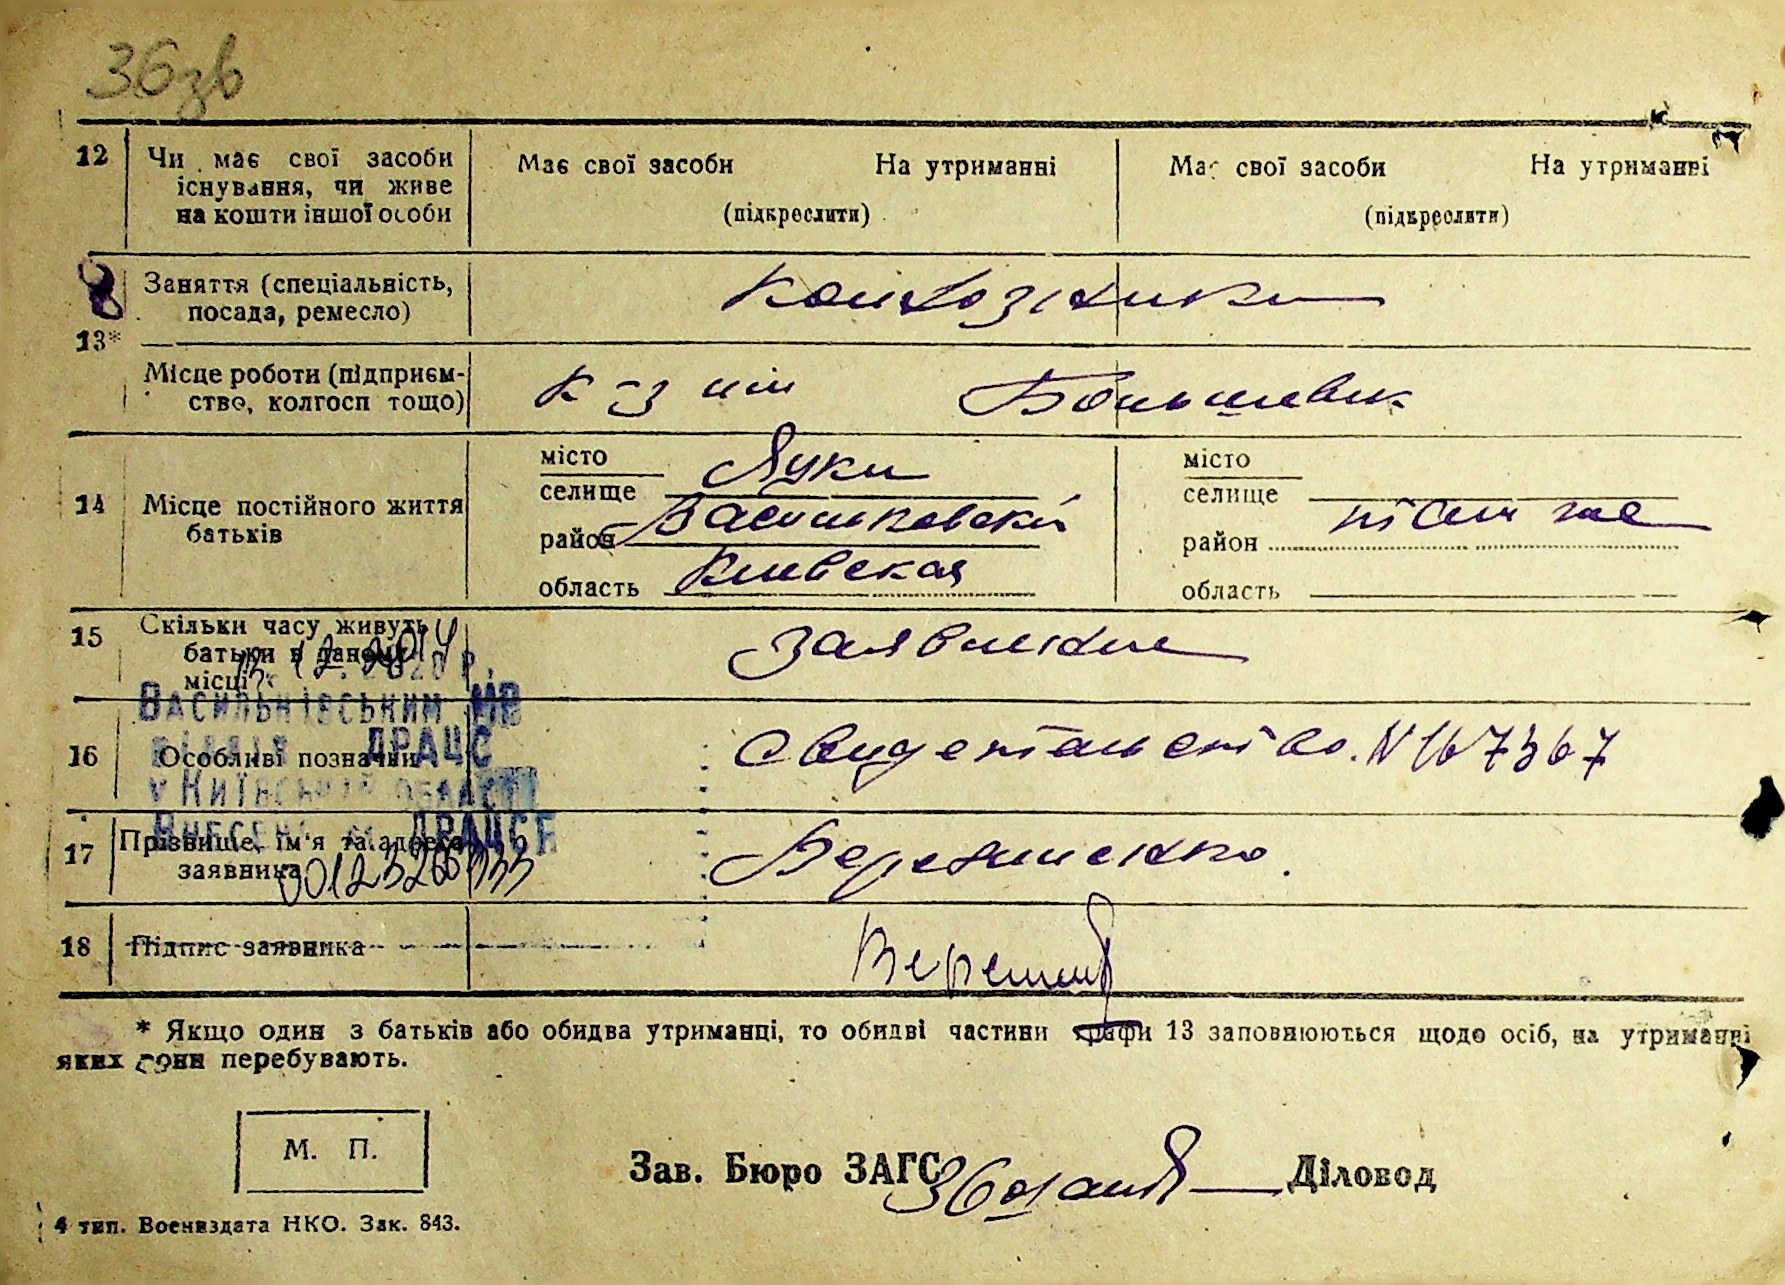 36зв
12 Чи має свої засоби існування, чи живе на кошти іншої особи
Має свої засоби На утриманні
(підкреслити)
Має свої засоби На утриманні
(підкреслити)
13* Заняття (спеціальність, посада, ремесло)
колхозники
Місце роботи (підприємство, колгосп тощо)
к-з им Большевик
14 Місце постійного життя батьків
місто
селище Луки
район Васильковский
область Киевская
місто
селище
район там же
область
15 Скільки часу живуть батьки в даному місці
16 Особливі позначки
свидетельство N 167367
Васильківським МВ
ДРАЦС
у Київській області
Внесено ДРАЦСГ
00123266333
17 Прізвище, ім'я та адреса заявника
18 Підпис заявника
* Якщо один з батьків або обидва утриманці, то обидві частини графи 13 заповнюються щодо осіб, на утриманні
яких вони перебувають.
М. П.
Зав. Бюро ЗАГС Діловод
4 тип. Воениздата НКО. Зак. 843.